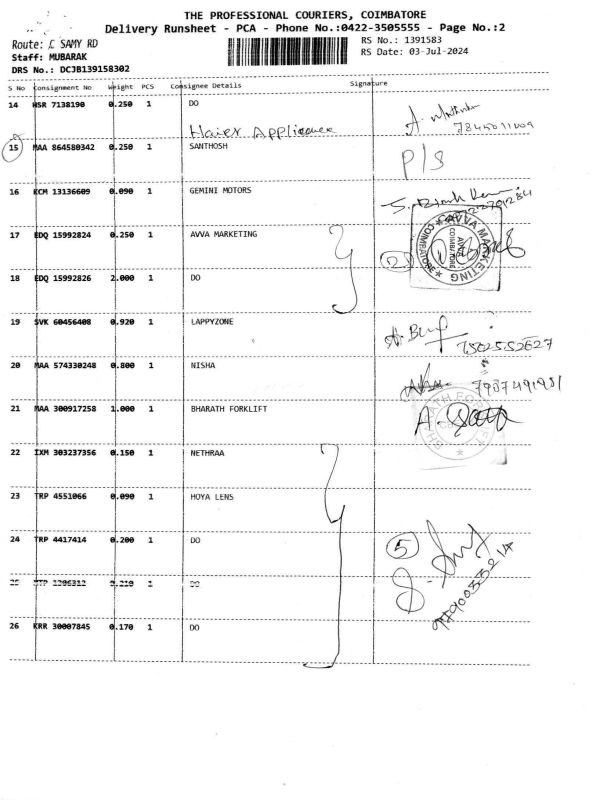 THE PROFESSIONAL COURIERS, COIMBATORE
Delivery Runsheet - PCA - Phone No.:0422-3505555 - Page No.:2
Route: C SAMY RD
RS No.: 1391583
Staff: MUBARAK
RS Date: 03-Jul-2024
DRS No.: DCJB139158302
S No Consignment No Weight PCS Consignee Details Signature
14 HSR 7138190 0.250 1 DO
Haier Appliance
15 MAA 864580342 0.250 1 SANTHOSH P/S
16 KCM 13136609 0.090 1 GEMINI MOTORS
17 EDQ 15992824 0.250 1 AVVA MARKETING
AVVA MARKETING COIMBATORE
18 EDQ 15992826 2.000 1 DO
19 SVK 60456408 0.920 1 LAPPYZONE
7502552627
20 MAA 574330248 0.800 1 NISHA
21 MAA 300917258 1.000 1 BHARATH FORKLIFT
22 IXM 303237356 0.150 1 NETHRAA
23 TRP 4551066 0.090 1 HOYA LENS
24 TRP 4417414 0.200 1 DO
5
25 1 DO
26 KRR 30007845 0.170 1 DO